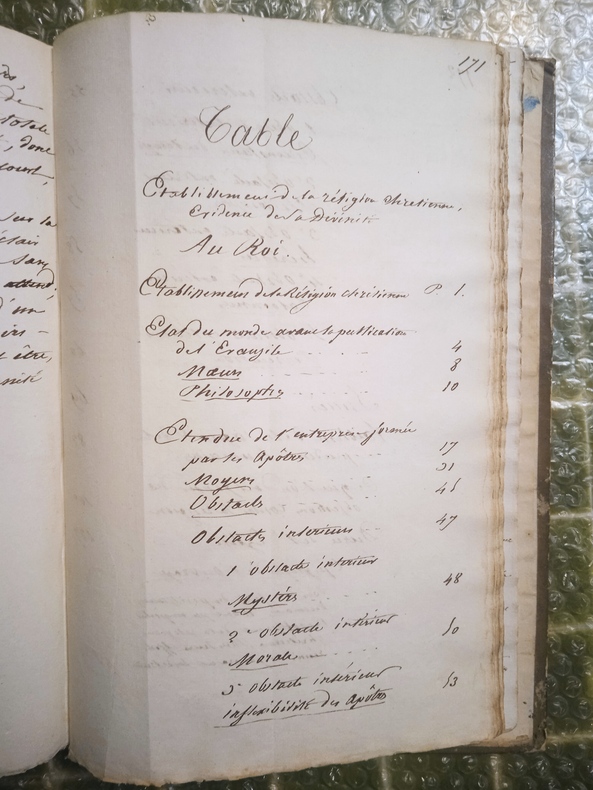 171
Table
Etablissement de la réligion chretienne,
Evidence de sa Divinité
Au Roi.
Etablissement de la Réligion chrétienne P. 1.
Etat du monde avant la publication
de l'Evangile 4
Mœurs 8
Philosophie 10
Etendue de l'entreprise formée
par les Apôtres 17
Moyens 31
Obstacles 45
Obstacles intérieurs 47
1 obstacle intérieur
Mystères 48
2e obstacle intérieur
Morale 50
3e obstacle intérieur
inflexibilité des Apôtres 53
totale
, donc
court,
sur la
sans
attend
d'un
être,